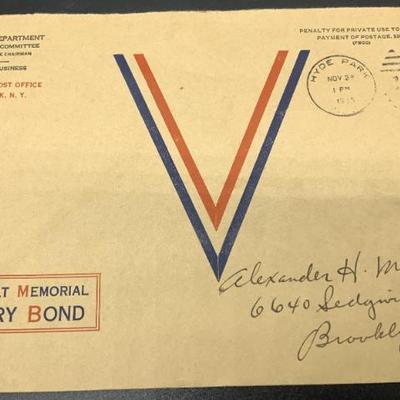 DEPARTMENT
COMMITTEE
CHAIRMAN
BUSINESS
POST OFFICE
K, N. Y.
PENALTY FOR PRIVATE USE TO
PAYMENT OF POSTAGE, $3
(PMGC)
HYDE PARK
NOV 28
1 PM
V
LT MEMORIAL
RY BOND
Alexander H. M
6640 Sedgwi
Brookly